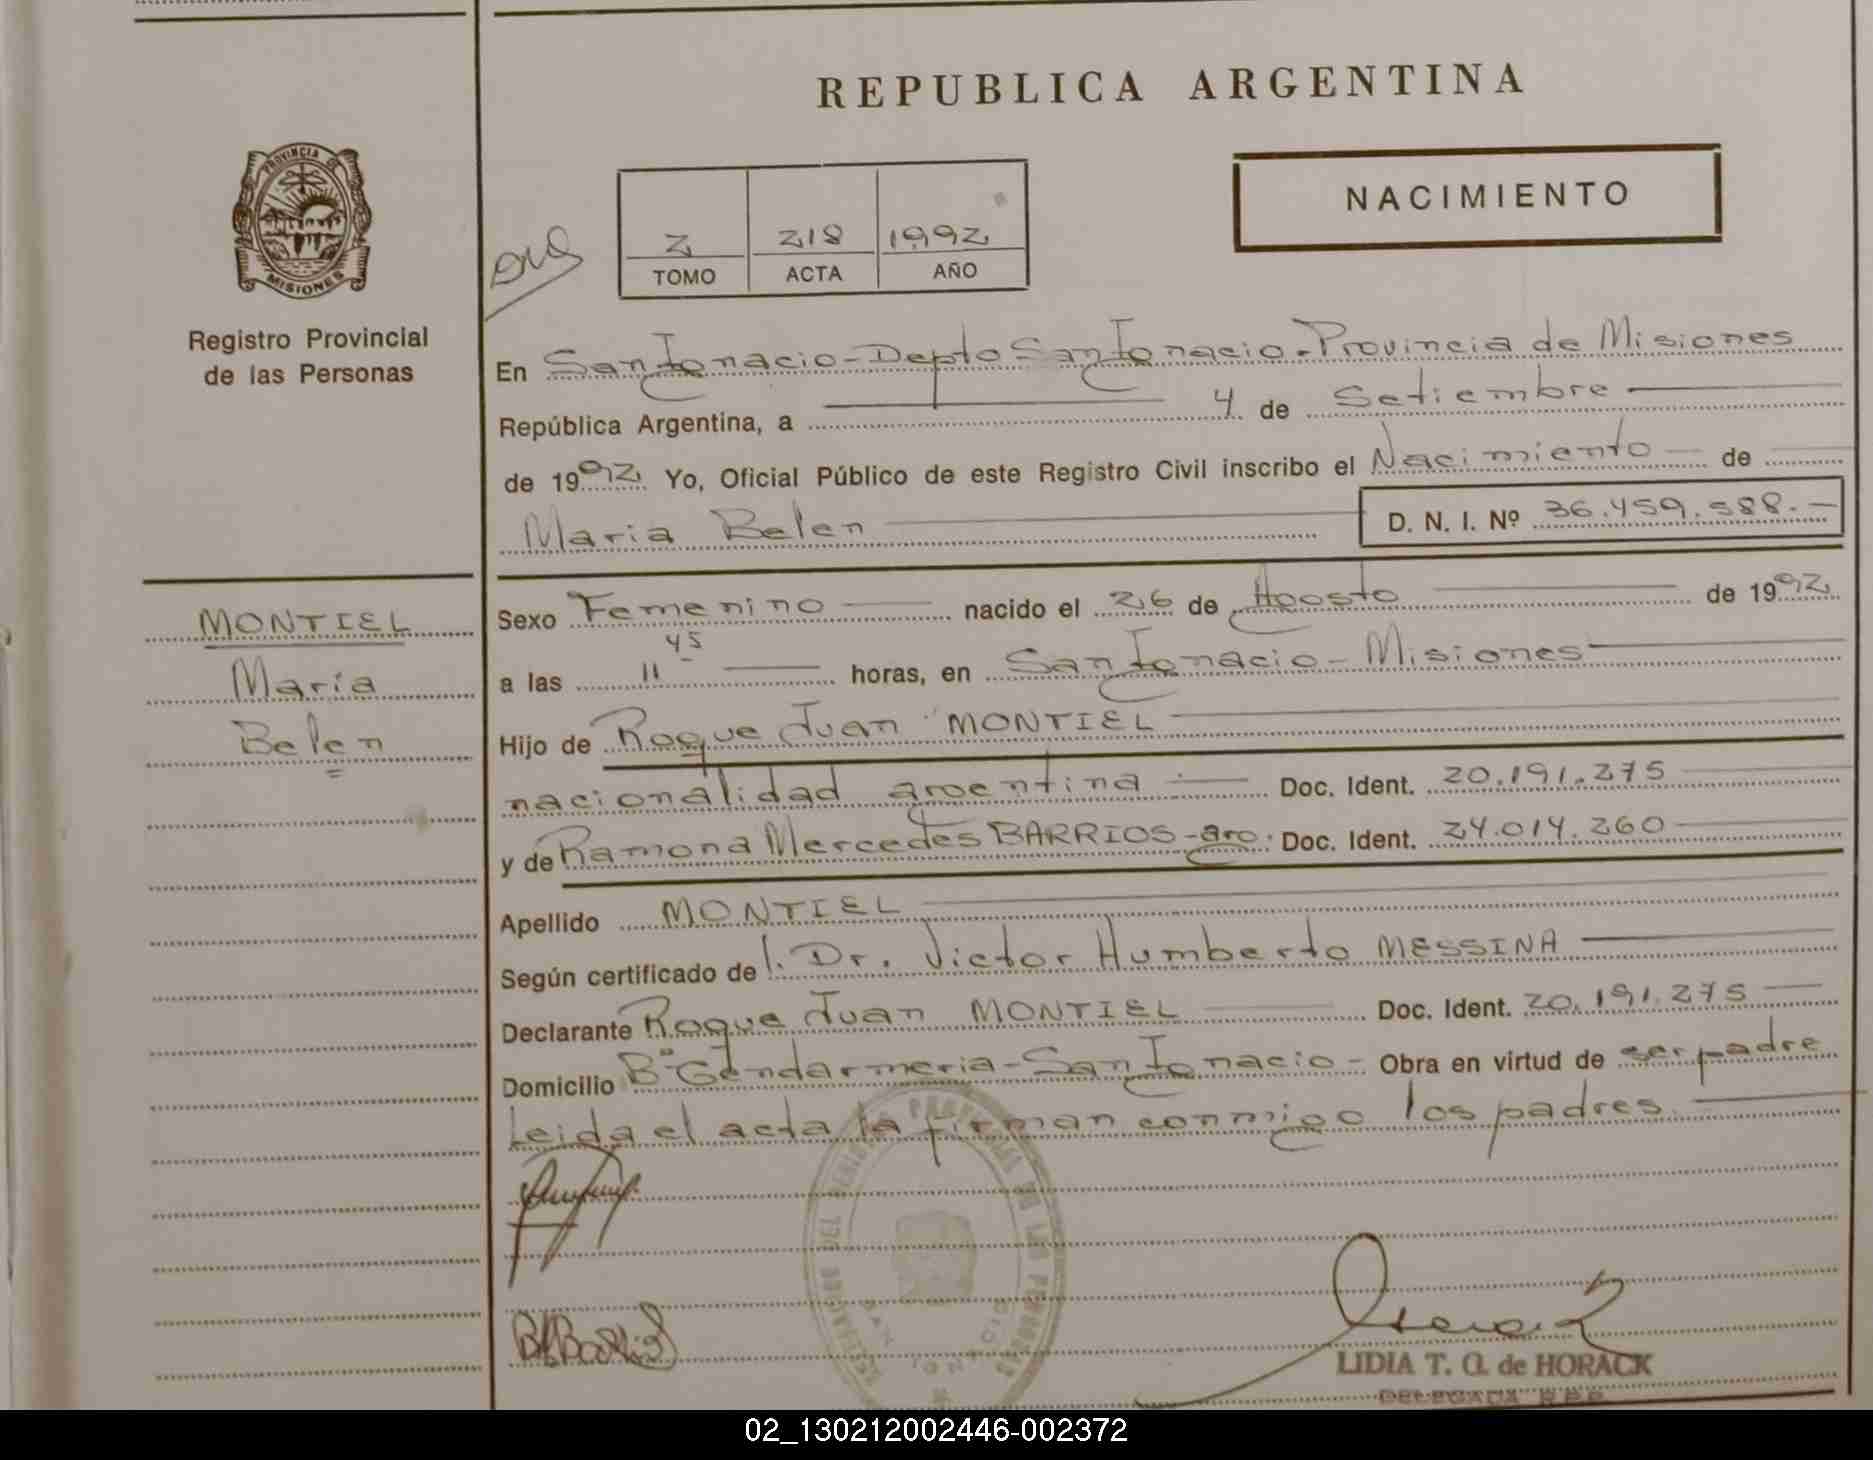 REPUBLICA ARGENTINA
PROVINCIA
MISIONES
Registro Provincial
de las Personas
NACIMIENTO
2 218 1992
TOMO ACTA AÑO
En San Ignacio - Depto San Ignacio - Provincia de Misiones
República Argentina, a 4 de Setiembre
de 1992 Yo, Oficial Público de este Registro Civil inscribo el Nacimiento de
Maria Belen D. N. I. Nº 36.459.588.-
MONTIEL
María
Belen
Sexo Femenino nacido el 26 de Agosto de 1992
a las 11 45 horas, en San Ignacio - Misiones
Hijo de Roque Juan MONTIEL
nacionalidad argentina Doc. Ident. 20.191.275
y de Ramona Mercedes BARRIOS - arg. Doc. Ident. 24.014.260
Apellido MONTIEL
Según certificado de l. Dr. Victor Humberto MESSINA
Declarante Roque Juan MONTIEL Doc. Ident. 20.191.275
Domicilio Bº Gendarmeria - San Ignacio - Obra en virtud de ser padre
Leida el acta la firman conmigo los padres.
SAN IGNACIO
LIDIA T. O. de HORACK
DELEGADA R.P.P.
02_130212002446-002372